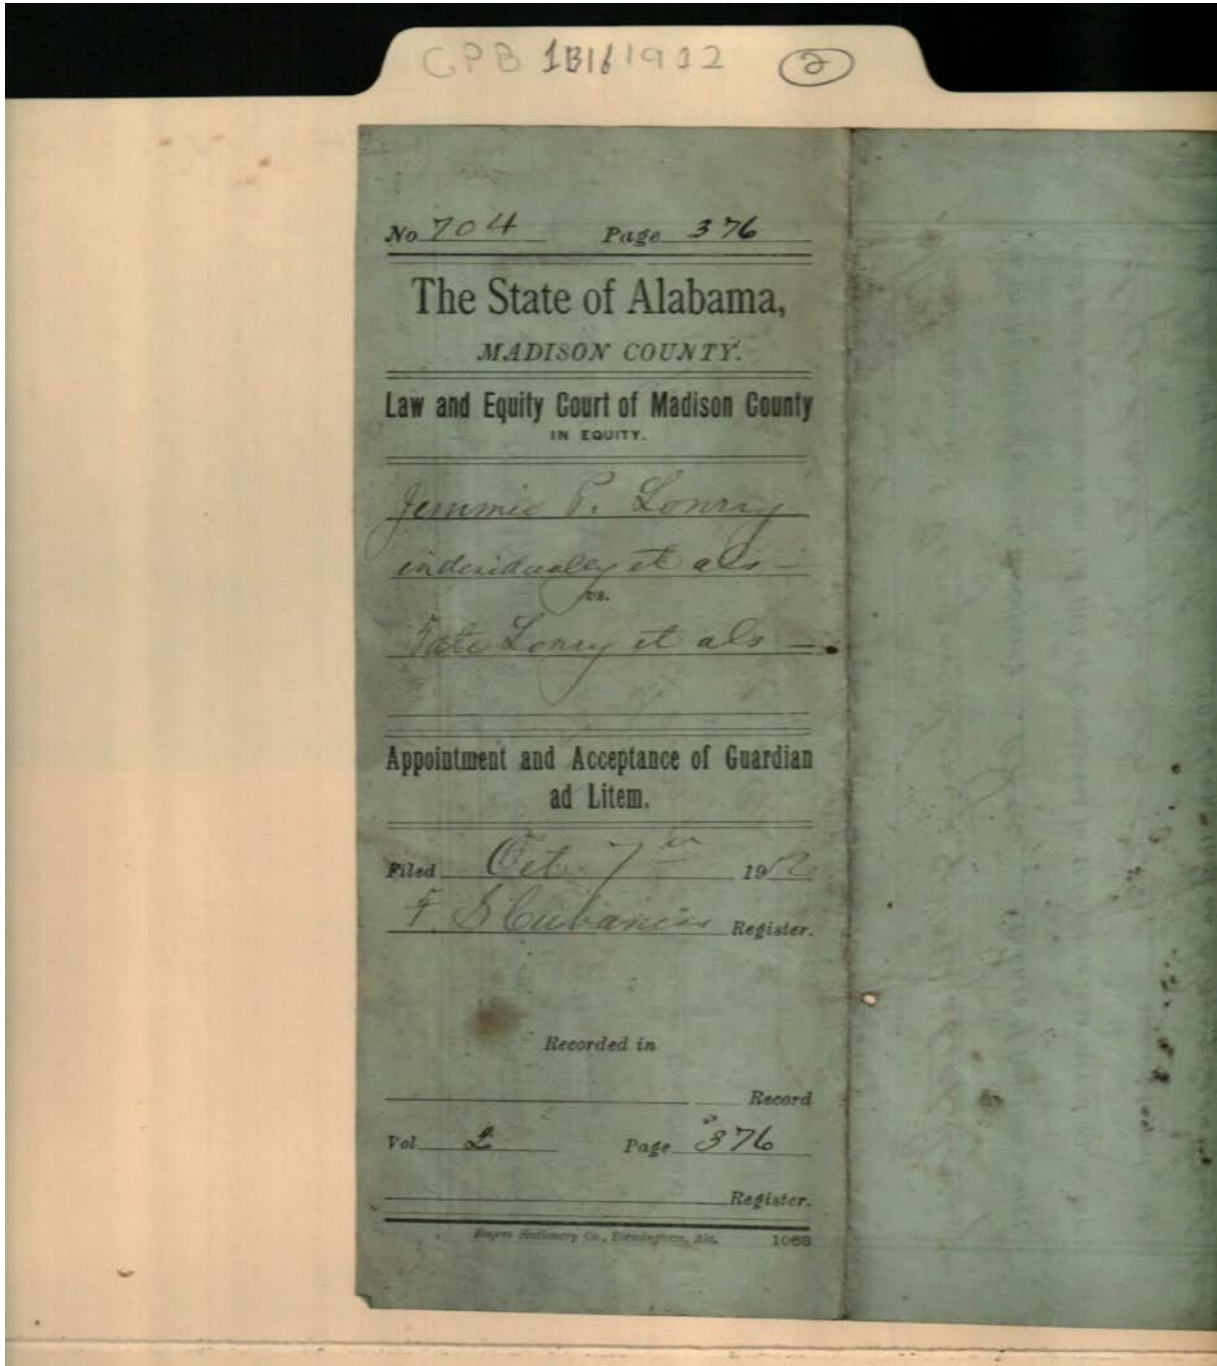 GPB 1B16 1912 2
No 704 Page 376
The State of Alabama,
MADISON COUNTY.
Law and Equity Court of Madison County
IN EQUITY.
Jemmie P. Lowry
individually et als —
vs.
Tate Lowry et als —
Appointment and Acceptance of Guardian
ad Litem.
Filed Oct. 7th 1912
F. S Register.
Recorded in
Record
Vol 2 Page 376
Register.
Stationery Co., Birmingham, Ala. 1068